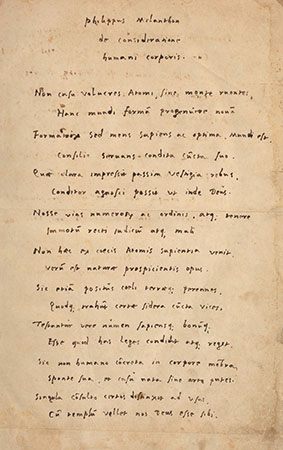 Philippus Melanthon
de consideratione
humani corporis.
Non casu volucres Atomi, sine mente ruentes,
Hanc mundi formā progenuere nouā
Formatrix sed mens sapiens ac optima, Mundi est
Consilio seruans condita cūcta suo.
Quæ clara impressit passim vestigia rebus,
Conditor agnosci possit ut inde Deus.
Nosse vias numeros ac ordinis, atq. tenere
Immotū recti iudiciū atq. mali
Non hæc ex cæcis Atomis sapientia venit,
verū est naturæ prospicientis opus.
Sic etiā positus cœli terræq. perennes,
Quodq. trahūt certæ sidera cūcta vices,
Testantur vere numen sapiensq. bonūq.
Esse quod has leges condidit atq. regit.
Sic non humano cōcreta in corpore mēbra,
sponte sua, et casu nata sine arte putes.
Singula cōsulto certos distinxit ad usus,
Cū templū vellet nos Deus esse sibi.